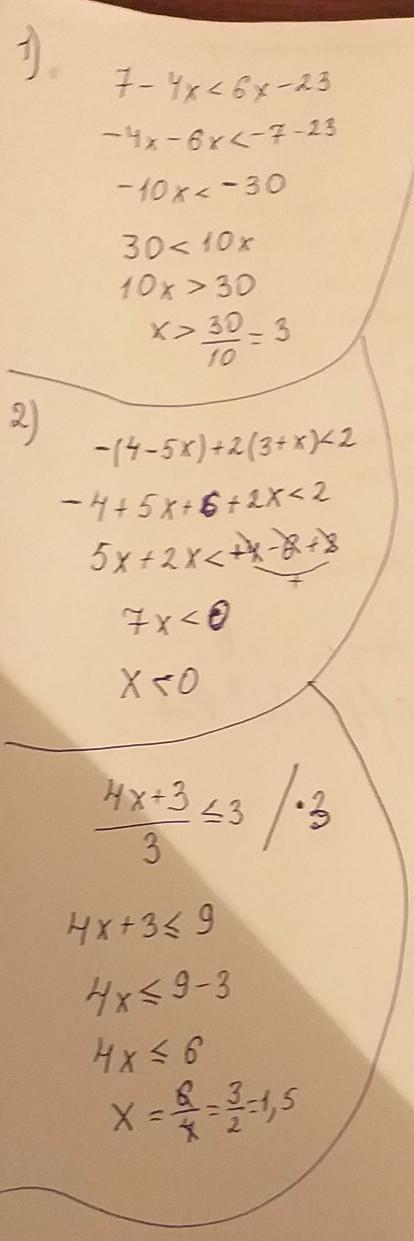 1).
7 - 4x < 6x - 23
-4x - 6x < -7 - 23
-10x < -30
30 < 10x
10x > 30
x > 30/10 = 3
2)
-(4-5x)+2(3+x)<2
-4+5x+6+2x<2
5x+2x<+4-6+2
7x<0
x<0
(4x+3)/3 ≤ 3 / ·3
4x+3 ≤ 9
4x ≤ 9-3
4x ≤ 6
x = 6/4 = 3/2 = 1,5